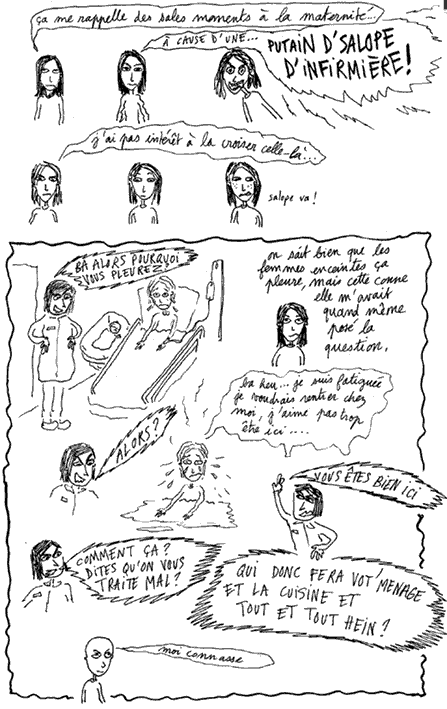 ça me rappelle des sales moments à la maternité...
À CAUSE D'UNE...
PUTAIN D'SALOPE
D'INFIRMIÈRE!
j'ai pas intérêt à la croiser celle-là...
salope va!
BA ALORS POURQUOI
VOUS PLEUREZ?
on sait bien que les
femmes enceintes ça
pleure, mais cette conne
elle m'avait
quand même
posé la
question.
ba heu... je suis fatiguée
je voudrais rentrer chez
moi, j'aime pas trop
être ici....
ALORS?
VOUS ÊTES BIEN ICI
COMMENT ÇA?
DITES QU'ON VOUS
TRAITE MAL?
QUI DONC FERA VOT' MENAGE
ET LA CUISINE ET
TOUT ET TOUT HEIN?
moi connasse